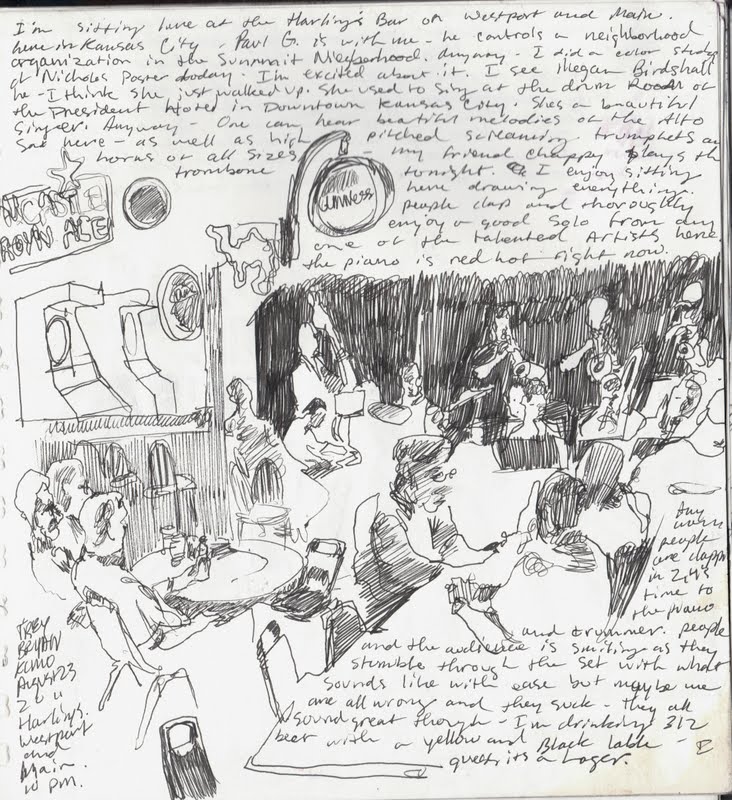 I'm sitting here at the Harling's Bar on Westport and Main.
here in Kansas City - Paul G. is with me - he controls a neighborhood
organization in the Summit Nieeporhood. anyway - I did a color study
of Nichols Poster today. I'm excited about it. I see Megan Birdshall
he - I think she just walked up. She used to sing at the drum Room at
the President hotel in Downtown Kansas City. Shes a beautiful
singer. Anyway - One can hear beatiful melodies of the Alto
Sax here - as well as high pitched screaming trumphets an
horns of all sizes - my friend Chappy plays th
trombone tonight. I enjoy sitting
here drawing everything.
people clap and thoroughly
enjoy a good solo from any
one of the talented Artists here.
the piano is red hot right now.
GUINNESS
ALE
Any
ways
people
are clappin
in 2 4's
time to
the piano
and drummer. people
and the audience is smiling as they
stumble through the set with what
sounds like with ease but maybe we
are all wrong and they suck - they all
sound great though - I'm drinking 312
beer with a yellow and Black lable - I
guess its a Lager.
Trey
Bryan
KCMO
August 23
2011
Harlings.
Westport
and
Main.
10 pm.